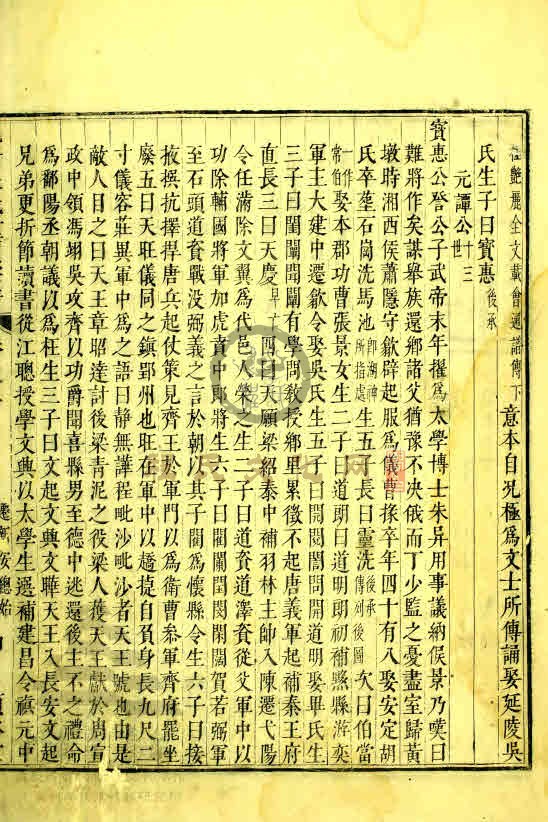 在艷麗全文載會通譜傳下意本自况極為文士所傳誦娶延陵吳
氏生子曰寳惠後承
元譚公十三世
寳惠公登公子武帝末年擢為太學博士朱异用事議納侯景乃嘆曰
難將作矣謀舉族還鄉諸父猶豫不决俄而丁少監之憂盡室歸黄
墩時湘西侯蕭隱守歙辟起服為儀曹掾卒年四十有八娶安定胡
氏卒塟石崗洗馬池即湖神所指處生五子長曰靈洗後承傳列後圖次曰伯當
一作常伯娶本郡功曹張景女生二子曰道朗曰道明郎初補黟縣游奕
軍主大建中遷歙令娶吳氏生五子曰閱誾闇問開道明娶畢氏生
三子曰闈闡闢有學問教授鄉里累徵不起唐義軍起補秦王府
直長三曰天慶早亡四曰天願梁紹泰中補羽林主帥入陳遷弋陽
令任滿除文翼為代邑人榮之生二子曰道㚘道澤㚘從父軍中以
功除輔國將軍加虎賁中郎將生六子曰開闌閏関闊闊賀若弼軍
至石頭道㚘戰没弼義之言於朝以其子閞為懷縣令生六子曰接
掖撰抗擇捍唐兵起仗策見齊王於軍門以為衛曹叅軍齊府罷坐
廢五曰天旺儀同之鎮郢州也旺在軍中以趫捷自負身長九尺二
寸儀容莊異軍中為之語曰静無譁程毗沙毗沙者天王號也由是
敵人目之曰天王章昭達討後梁青泥之役梁人獲天王獻於周宣
政中領馮翊吳攻齊以功爵聞喜縣男至德中逃還後主不之禮命
為鄱陽丞朝議以為枉生三子曰文起文典文聨天王入長安文起
兄弟更折節讀書從江聰授學文典以太學生選補建昌令禎元中